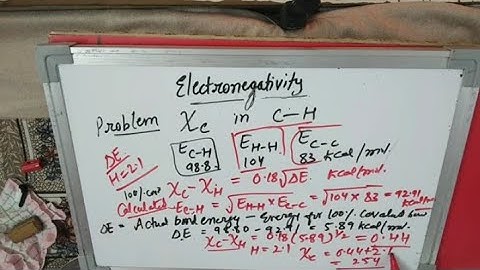 Electronegativity
Problem Xc in C-H
ΔE
H=2.1
E C-H 98.8
E H-H 104
E C-C 83 Kcal/mol.
100% cov Xc - XH = 0.18 √ΔE Kcal/mol.
Calculated E C-H = √E H-H × E C-C = √104 × 83 = 92.91 Kcal/mol
ΔE = Actual bond energy - Energy for 100% Covalent bond
ΔE = 98.80 - 92.91 = 5.89 Kcal/mol.
Xc - XH = 0.18 (5.89)^1/2 = 0.44
H = 2.1 Xc = 0.44 + 2.1
= 2.54